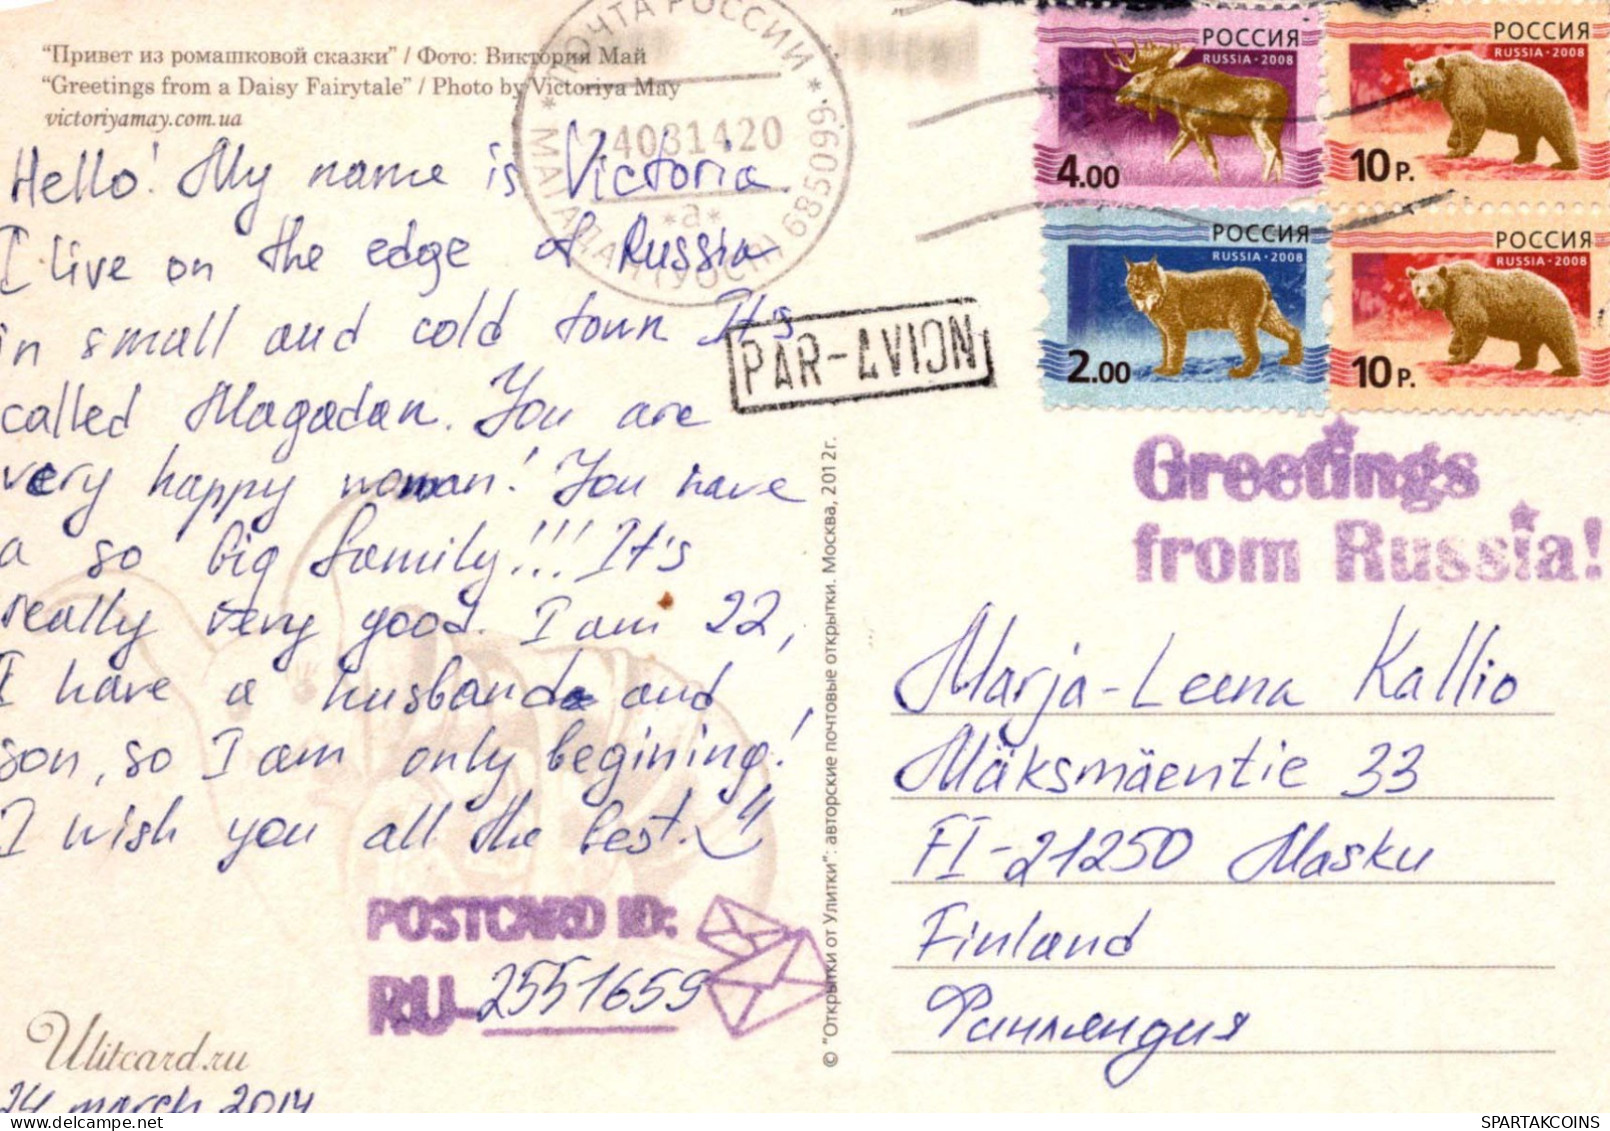 "Привет из ромашковой сказки" / Фото: Виктория Май
"Greetings from a Daisy Fairytale" / Photo by Victoriya May
victoriyamay.com.ua
Hello! My name is Victoria
I live on the edge of Russia
in small and cold town It's
called Magadan. You are
very happy woman! You have
a so big family!!! It's
really very good. I am 22,
I have a husband and
son, so I am only begining!
I wish you all the best.
POSTCARD ID:
RU-2551659
Ulitcard.ru
24 march 2014
ПОЧТА РОССИИ
24031420
*а*
МАГАДАН 685099
PAR-AVION
© "Открытки от Улитки": авторские почтовые открытки. Москва, 2012г.
РОССИЯ
RUSSIA·2008
4.00
РОССИЯ
RUSSIA·2008
10 Р.
РОССИЯ
RUSSIA·2008
2.00
РОССИЯ
RUSSIA·2008
10 Р.
Greetings
from Russia!
Marja-Leena Kallio
Mäksmäentie 33
FI-21250 Masku
Finland
Финляндия
SPARTAKCOINS